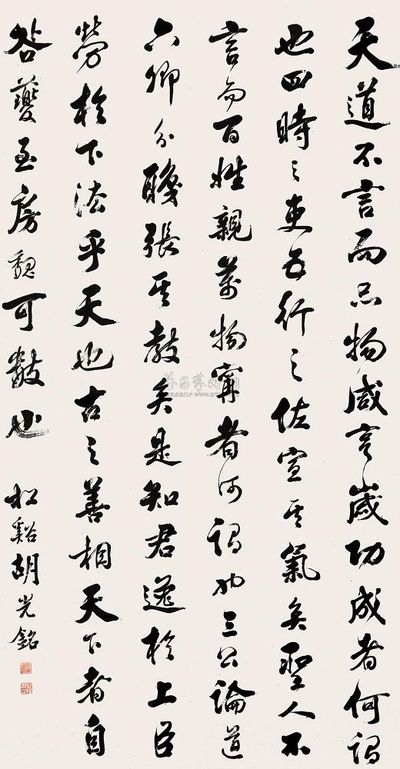 天道不言而品物咸亨歲功成者何謂
也四時之吏五行之佐宣其氣矣聖人不
言而百姓親萬物寧者何謂也三公論道
六卿分職張其教矣是知君逸於上臣
勞於下法乎天也古之善相天下者自
咎夔至房魏可數也
松谿胡光銘